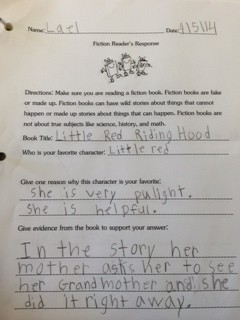 Name: Lael Date: 9/5/14
Fiction Reader's Response
Directions: Make sure you are reading a fiction book. Fiction books are fake
or made up. Fiction books can have wild stories about things that cannot
happen or made up stories about things that can happen. Fiction books are
not about true subjects like science, history, and math.
Book Title: Little Red Riding Hood
Who is your favorite character: Little red
Give one reason why this character is your favorite:
She is very pulight.
She is helpful.
Give evidence from the book to support your answer:
In the story her
mother asks her to see
her Grandmother and she
did it right away.